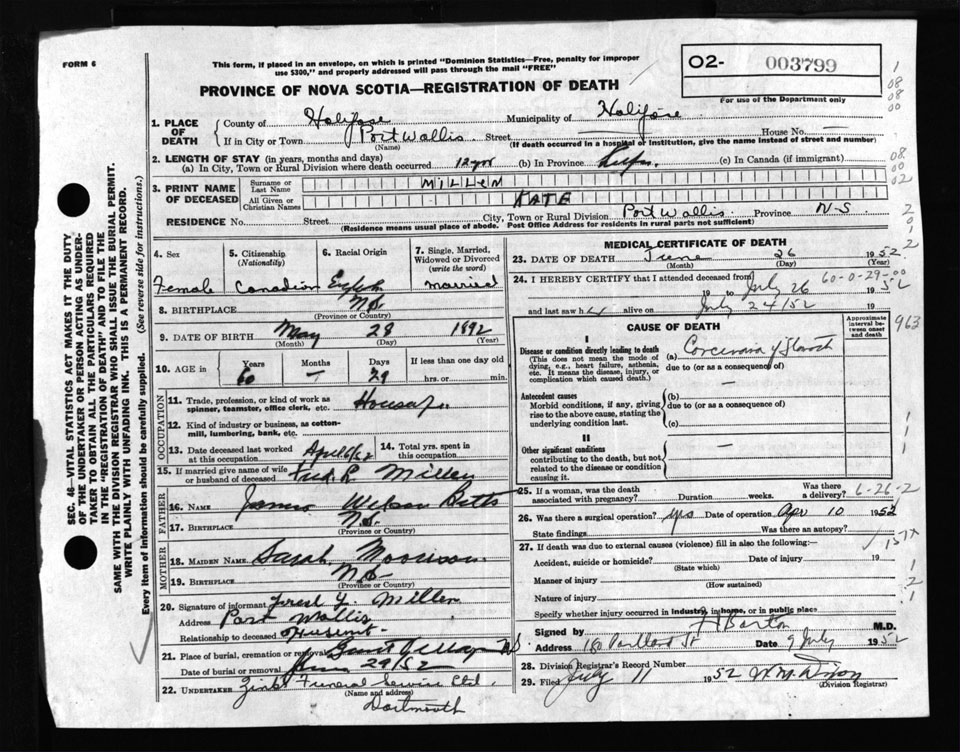 FORM 6
This form, if placed in an envelope, on which is printed "Dominion Statistics—Free, penalty for improper
use $300," and properly addressed will pass through the mail "FREE"
O2- 003799
For use of the Department only
PROVINCE OF NOVA SCOTIA—REGISTRATION OF DEATH
1. PLACE OF DEATH
County of Halifax Municipality of Halifax
If in City or Town Port Wallis Street House No. —
(Name) (If death occurred in a hospital or institution, give the name instead of street and number)
2. LENGTH OF STAY (in years, months and days)
(a) In City, Town or Rural Division where death occurred 12 yrs (b) In Province (c) In Canada (if immigrant)
3. PRINT NAME OF DECEASED
Surname or Last Name MILLER
All Given or Christian Names KATE
RESIDENCE No. Street City, Town or Rural Division Port Wallis Province N-S
(Residence means usual place of abode. Post Office Address for residents in rural parts not sufficient)
4. Sex Female
5. Citizenship (Nationality) Canadian
6. Racial Origin English
7. Single, Married, Widowed or Divorced (write the word) Married
8. BIRTHPLACE N.S.
(Province or Country)
9. DATE OF BIRTH May 28 1892
(Month) (Day) (Year)
10. AGE in Years 60 Months — Days 29 If less than one day old hrs. or min.
OCCUPATION
11. Trade, profession, or kind of work as
spinner, teamster, office clerk, etc.
12. Kind of industry or business, as cotton-
mill, lumbering, bank, etc.
13. Date deceased last worked
at this occupation
14. Total yrs. spent in
this occupation
15. If married give name of wife
or husband of deceased Fred L Miller
FATHER
16. Name James Wilson Betts
17. Birthplace N.S.
(Province or Country)
MOTHER
18. Maiden Name Sarah Morrison
19. Birthplace N.S.
(Province or Country)
20. Signature of informant Fred L. Miller
Address Port Wallis
Relationship to deceased Husband
21. Place of burial, cremation or removal N.S.
Date of burial or removal June 29/52
22. Undertaker Zinks Funeral Service Ltd.
(Name and address)
Dartmouth
MEDICAL CERTIFICATE OF DEATH
23. DATE OF DEATH June 26 1952
(Month) (Day) (Year)
24. I HEREBY CERTIFY that I attended deceased from
60-0-29-00
19 to July 26 1952
and last saw h alive on July 24/52 19
CAUSE OF DEATH
Approximate interval between onset and death
I
Disease or condition directly leading to death
(This does not mean the mode of
dying, e.g., heart failure, asthenia,
etc. It means the disease, injury, or
complication which caused death.)
(a)
due to (or as a consequence of)
Antecedent causes
Morbid conditions, if any, giving
rise to the above cause, stating the
underlying condition last.
(b) —
due to (or as a consequence of)
(c)
II
Other significant conditions
contributing to the death, but not
related to the disease or condition
causing it.
—
25. If a woman, was the death
associated with pregnancy? Duration weeks. Was there a delivery? 6-26-2
26. Was there a surgical operation? yes Date of operation Apr 10 1952
State findings Was there an autopsy?
27. If death was due to external causes (violence) fill in also the following:—
Accident, suicide or homicide? Date of injury 19
(State which)
Manner of injury
(How sustained)
Nature of injury
Specify whether injury occurred in industry, in home, or in public place
Signed by H Barton M.D.
Address Date 9 July 1952
28. Division Registrar's Record Number
29. Filed July 11 1952
(Division Registrar)
SEC. 46—VITAL STATISTICS ACT MAKES IT THE DUTY
OF THE UNDERTAKER OR PERSON ACTING AS UNDER-
TAKER TO OBTAIN ALL THE PARTICULARS REQUIRED
IN THE "REGISTRATION OF DEATH" AND TO FILE THE
SAME WITH THE DIVISION REGISTRAR WHO SHALL ISSUE THE BURIAL PERMIT.
WRITE PLAINLY WITH UNFADING INK. THIS IS A PERMANENT RECORD.
Every item of information should be carefully supplied. (See reverse side for instructions.)